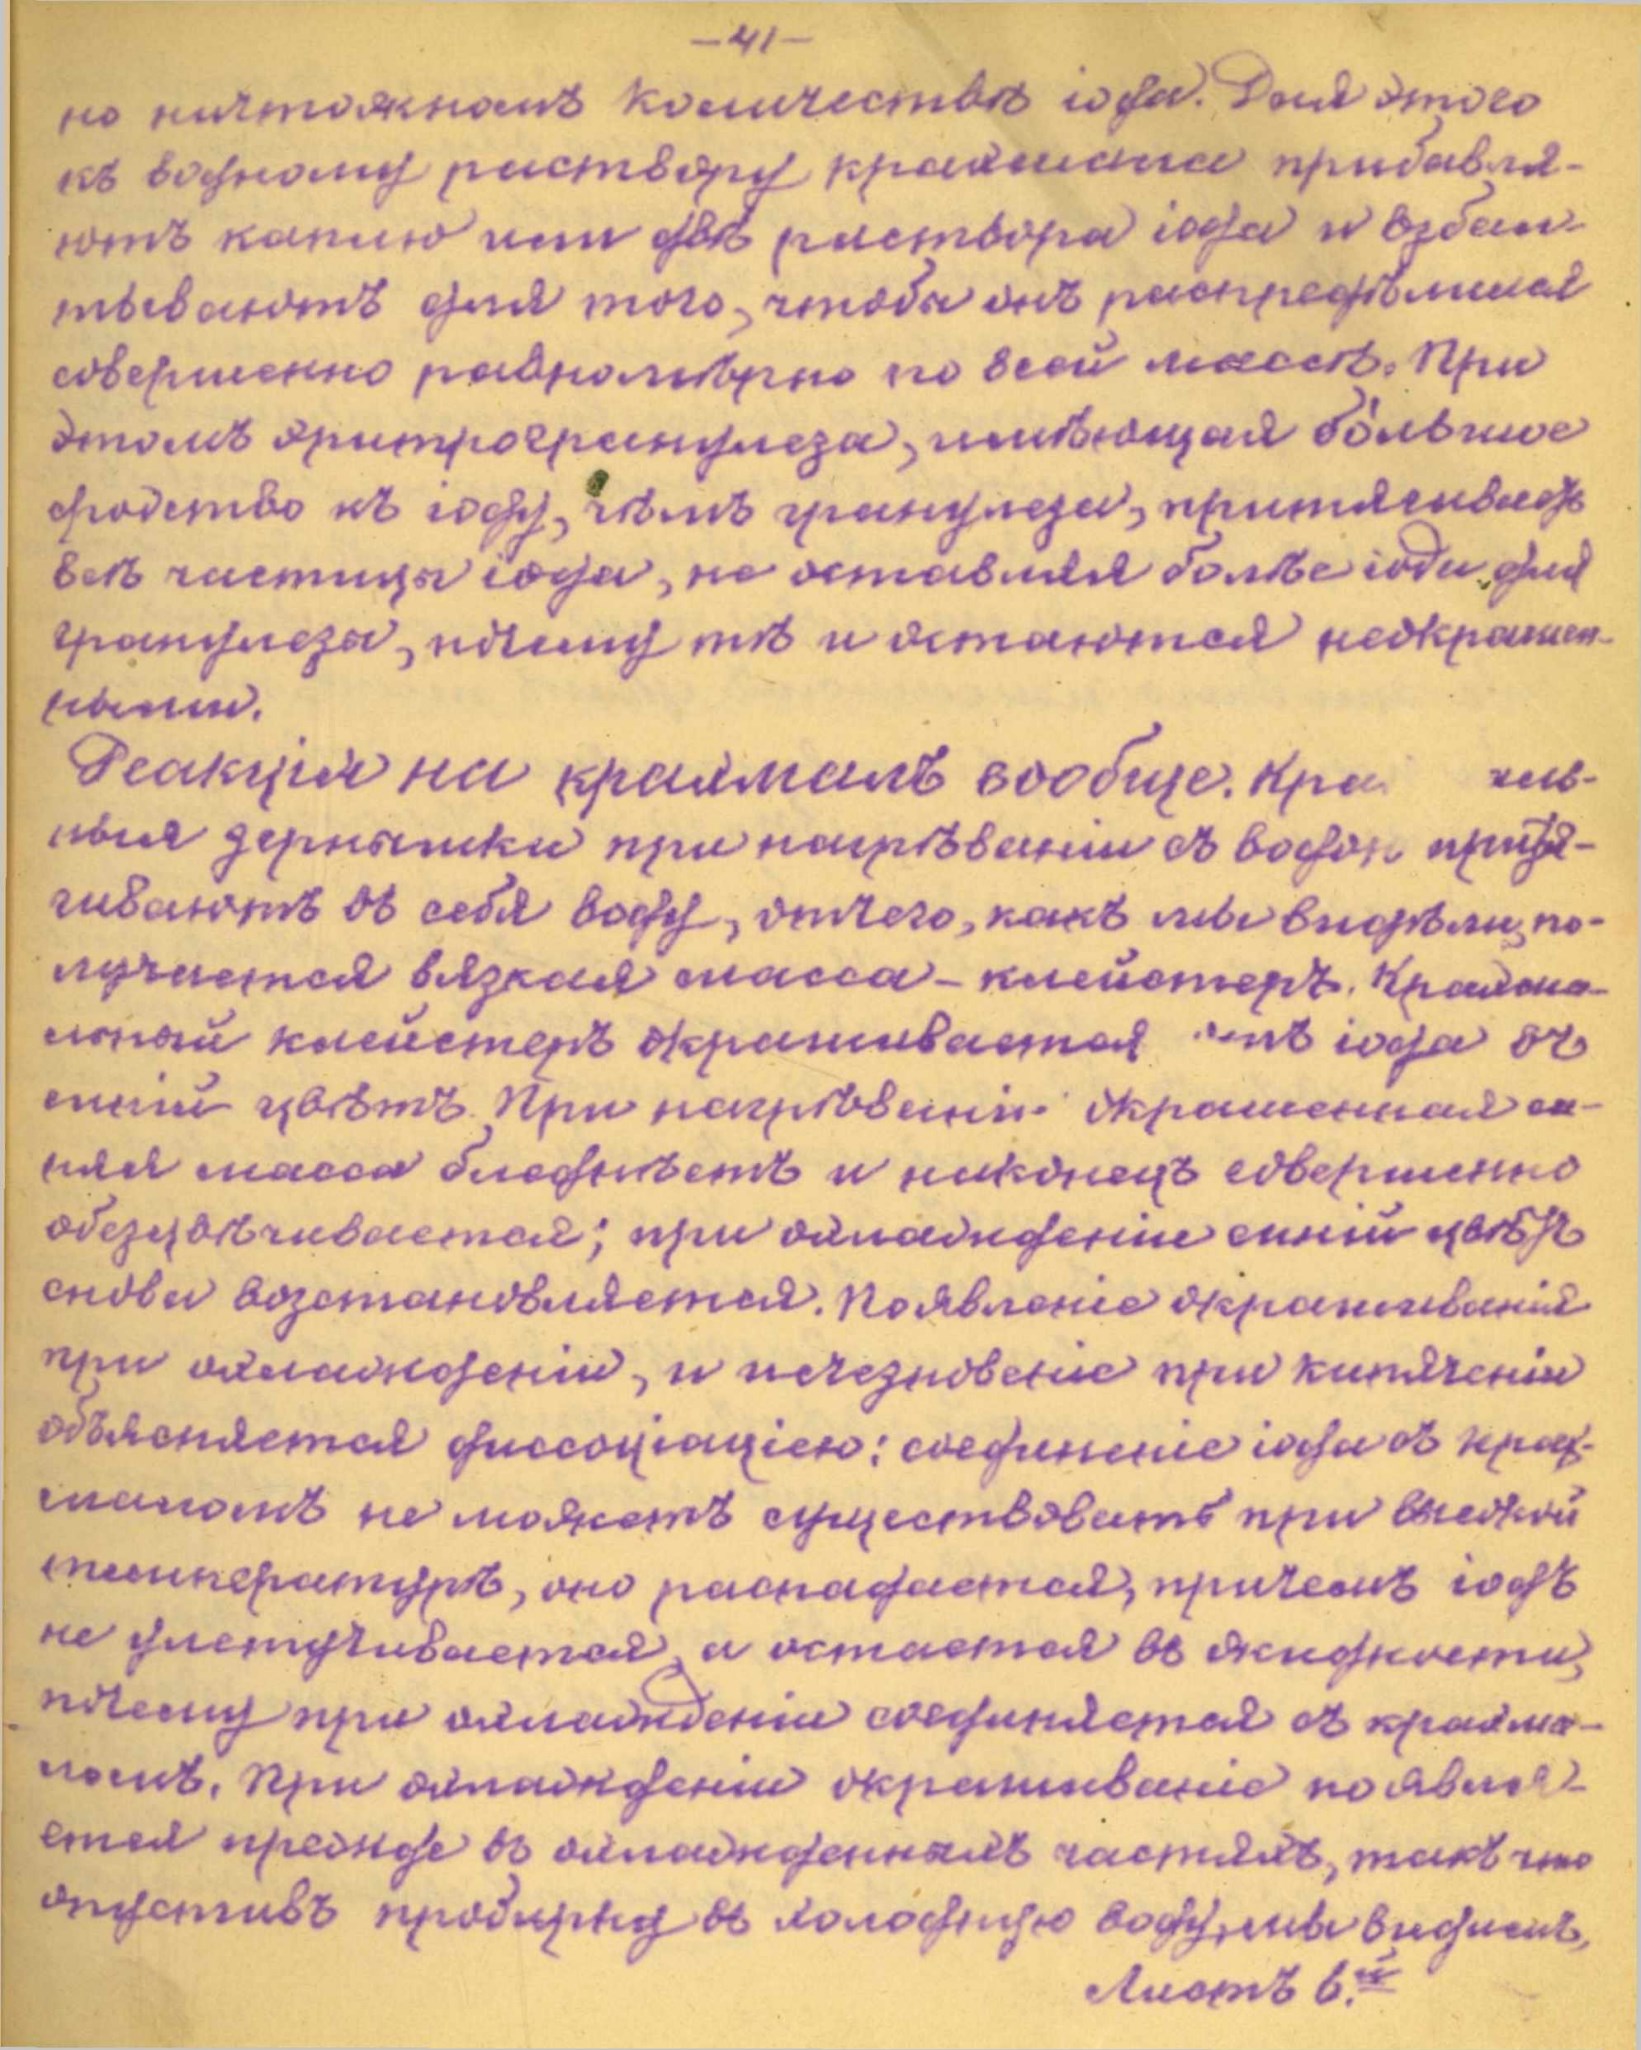 -41-
но ничтожномъ количествѣ іода. Для этого
къ водному раствору крахмала прибавля-
ютъ каплю или двѣ раствора іода и взбал-
тываютъ для того, чтобы онъ распредѣлился
совершенно равномѣрно по всей массѣ. При
этомъ эритрогранулеза, имѣющая бо́льшое
сродство къ іоду, чѣмъ гранулеза, притягиваетъ
всѣ частицы іода, не оставляя болѣе іода для
гранулезы, почему тѣ и остаются неокрашен-
ными.
Реакція на крахмалъ вообще. Кра маль-
ныя зернышки при нагрѣваніи съ водою притя-
гиваютъ въ себя воду, отчего, какъ мы видѣли, по-
лучается вязкая масса - клейстеръ. Крахма-
льный клейстеръ окрашивается отъ іода въ
синій цвѣтъ. При нагрѣваніи окрашенная си-
няя масса блѣднѣетъ и наконецъ совершенно
обезцвѣчивается; при охлажденіи синій цвѣтъ
снова возстановляется. Появленіе окрашиванія
при охлажденіи, и исчезновеніе при кипяченіи
объясняется диссоціаціею: соединеніе іода съ крах-
маломъ не можетъ существовать при высокой
температурѣ, оно распадается, причемъ іодъ
не улетучивается, а остается въ жидкости,
почему при охлажденіи соединяется съ крахма-
ломъ. При охлажденіи окрашиваніе появля-
ется прежде въ охлажденныхъ частяхъ, такъ что
опустивъ пробирку въ холодную воду, мы видимъ,
Листъ 6.й